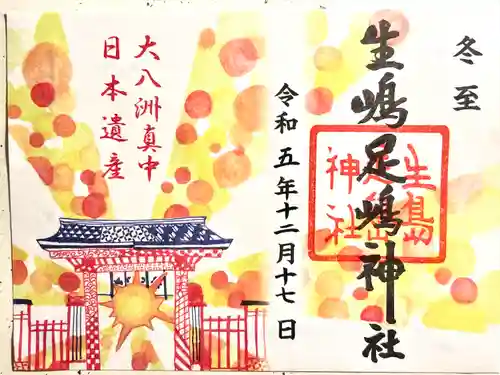 冬至
生嶋足嶋神社
生島
足島
神社
令和五年十二月十七日
大八洲真中
日本遺産